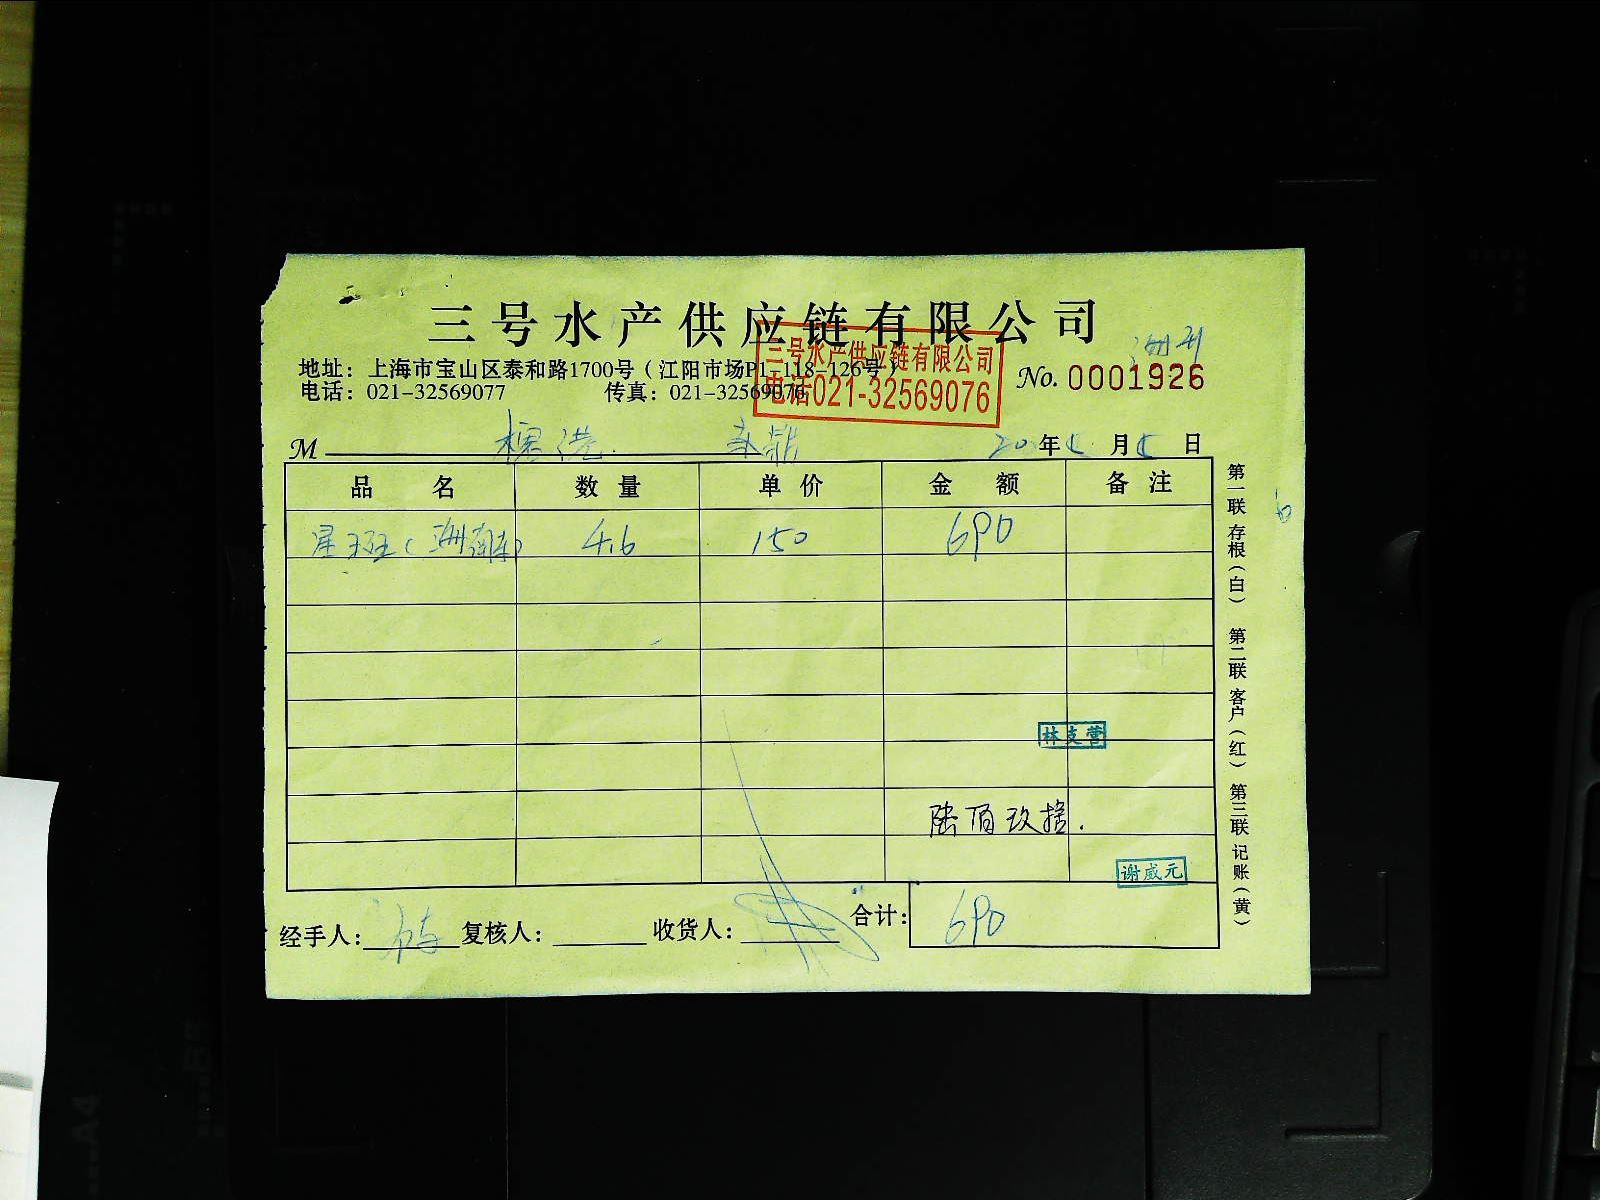 三号水产供应链有限公司
地址：上海市宝山区泰和路1700号（江阳市场P1-118-126号）
电话：021-32569077 传真：021-32569076
三号水产供应链有限公司
电话021-32569076
No. 0001926
M 20 年 月 日
品名 数量 单价 金额 备注
星班 4.6 150 690
林支营
陆佰玖拾.
谢威元
经手人： 复核人： 收货人： 合计： 690
第一联 存根（白） 第二联 客户（红） 第三联 记账（黄）